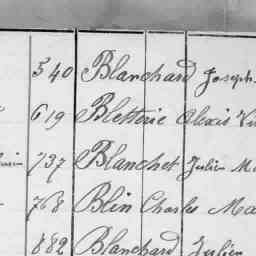 540 Blanchard Joseph
619 Bletterie Alexis
737 Blanchet Julien
768 Blin Charles
882 Blanchard Julien